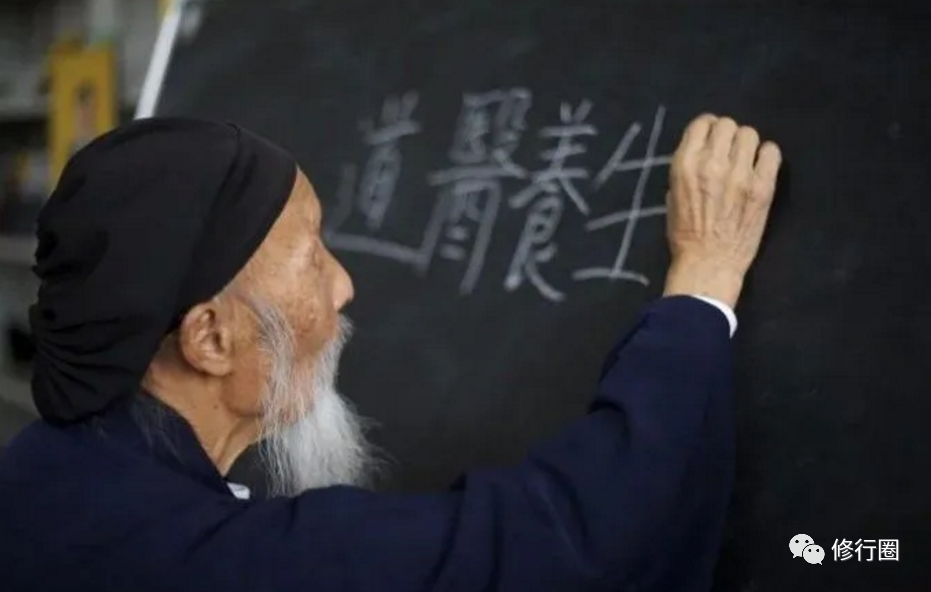 道醫養生
修行圈